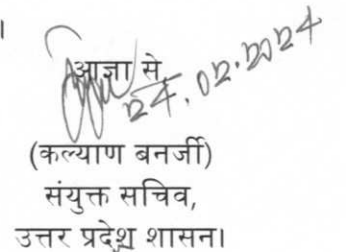 ।
आज्ञा से,
24.02.2024
(कल्याण बनर्जी)
संयुक्त सचिव,
उत्तर प्रदेश शासन।